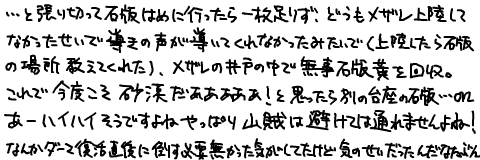 …と張り切って石版はめに行ったら一枚足りず、どうもメザレ上陸して
なかったせいで導きの声が導いてくれなかったみたいで(上陸したら石版
の場所教えてくれた)、メザレの井戸の中で無事石版黄を回収。
これで今度こそ砂漠だああああ!と思ったら別の台座の石版…orz
あーハイハイそうですよねやっぱり山賊は避けては通れませんよね!
なんかダーマ復活直後に倒す必要無かった気がしてたけど気のせいだったんだなたぶん